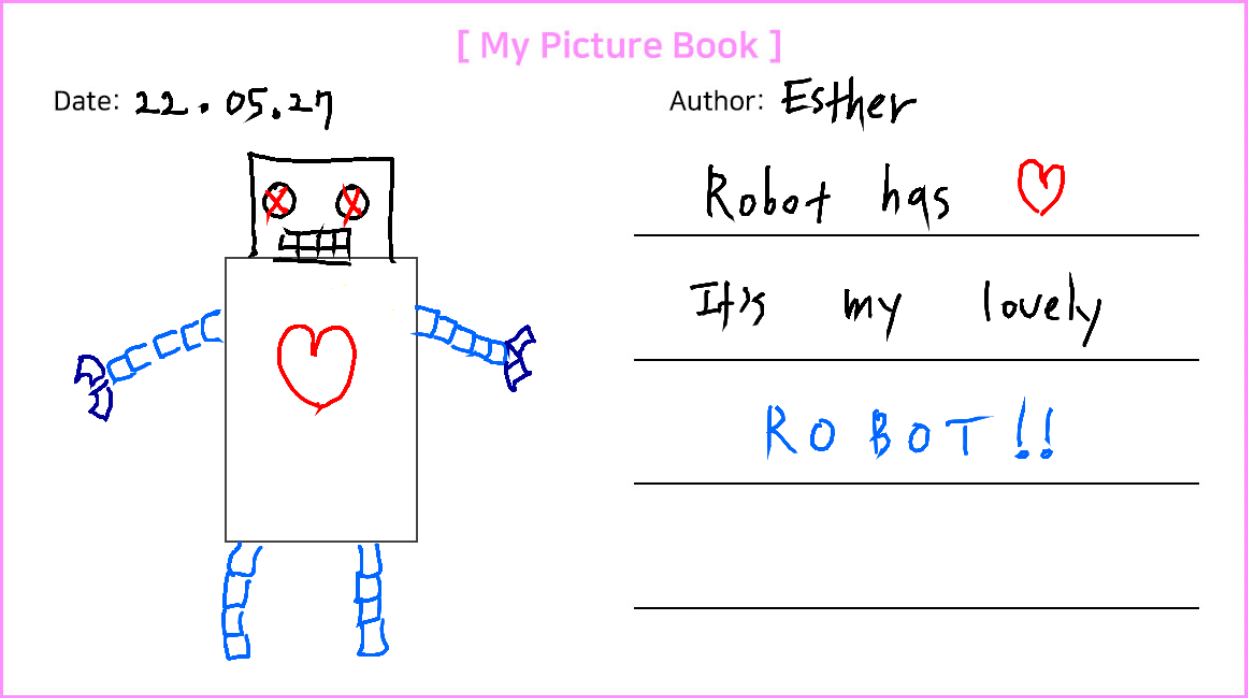 [ My Picture Book ]
Date: 22.05.27
Author: Esther
Robot has ♡
It's my lovely
ROBOT!!